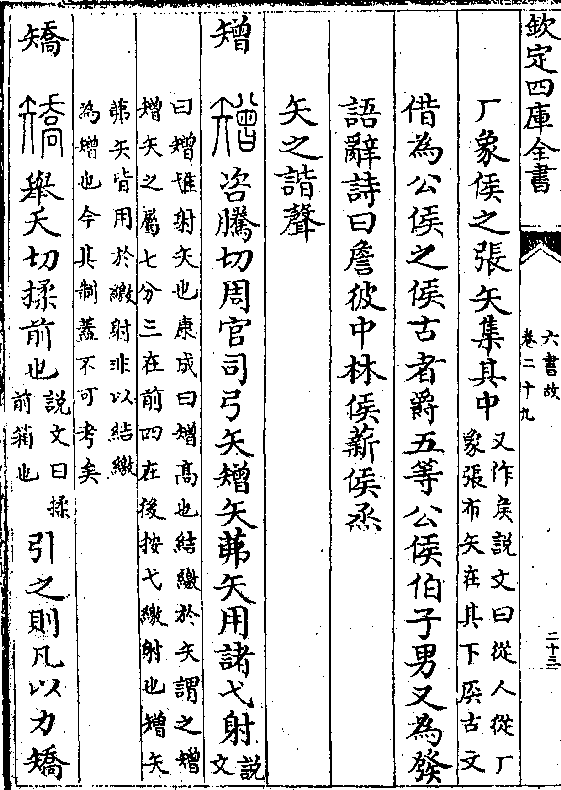 欽定四庫全書
六書故
卷二十九
二十三
厂象侯之張矢集其中又作矦説文曰從人從厂
象張布矢在其下𥎦古文
借為公侯之侯古者爵五等公侯伯子男又為發
語辭詩曰詹彼中林侯薪侯烝
矢之諧聲
矰 咨騰切周官司弓矢矰矢茀矢用諸弋射説文
曰矰隿射矢也康成曰矰高也結繳於矢謂之矰
矰矢之屬七分三在前四在後按弋繳射也矰矢
茀矢皆用於繳射非以結繳
為矰也今其制蓋不可考矣
矯 舉夭切揉前也説文曰揉
前箱也引之則凡以力矯